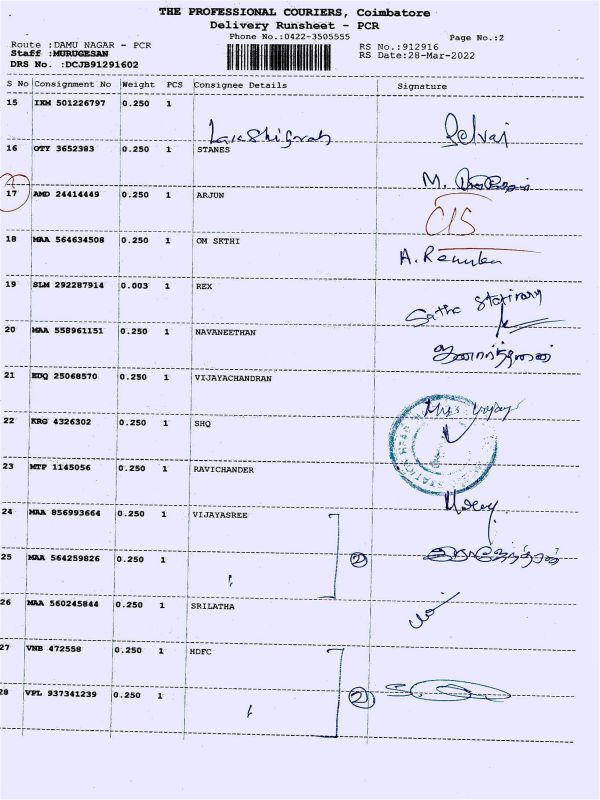 THE PROFESSIONAL COURIERS, Coimbatore
Delivery Runsheet - PCR
Phone No.:0422-3505555 Page No.:2
Route :DAMU NAGAR - PCR RS No.:912916
Staff :MURUGESAN RS Date:28-Mar-2022
DRS No. :DCJB91291602
S No Consignment No Weight PCS Consignee Details Signature
15 IXM 501226797 0.250 1
Selvaj
16 OTY 3652383 0.250 1 STANES
M.
17 AMD 24414449 0.250 1 ARJUN
C/S
18 MAA 564634508 0.250 1 OM SKTHI
A. Renuka
19 SLM 292287914 0.003 1 REX
Sathe Stationary
20 MAA 558961151 0.250 1 NAVANEETHAN
21 EDQ 25068570 0.250 1 VIJAYACHANDRAN
22 KRG 4326302 0.250 1 SHQ
23 MTP 1145056 0.250 1 RAVICHANDER
24 MAA 856993664 0.250 1 VIJAYASREE
25 MAA 564259826 0.250 1 2
26 MAA 560245844 0.250 1 SRILATHA
27 VNB 472558 0.250 1 HDFC
28 VPL 937341239 0.250 1 2